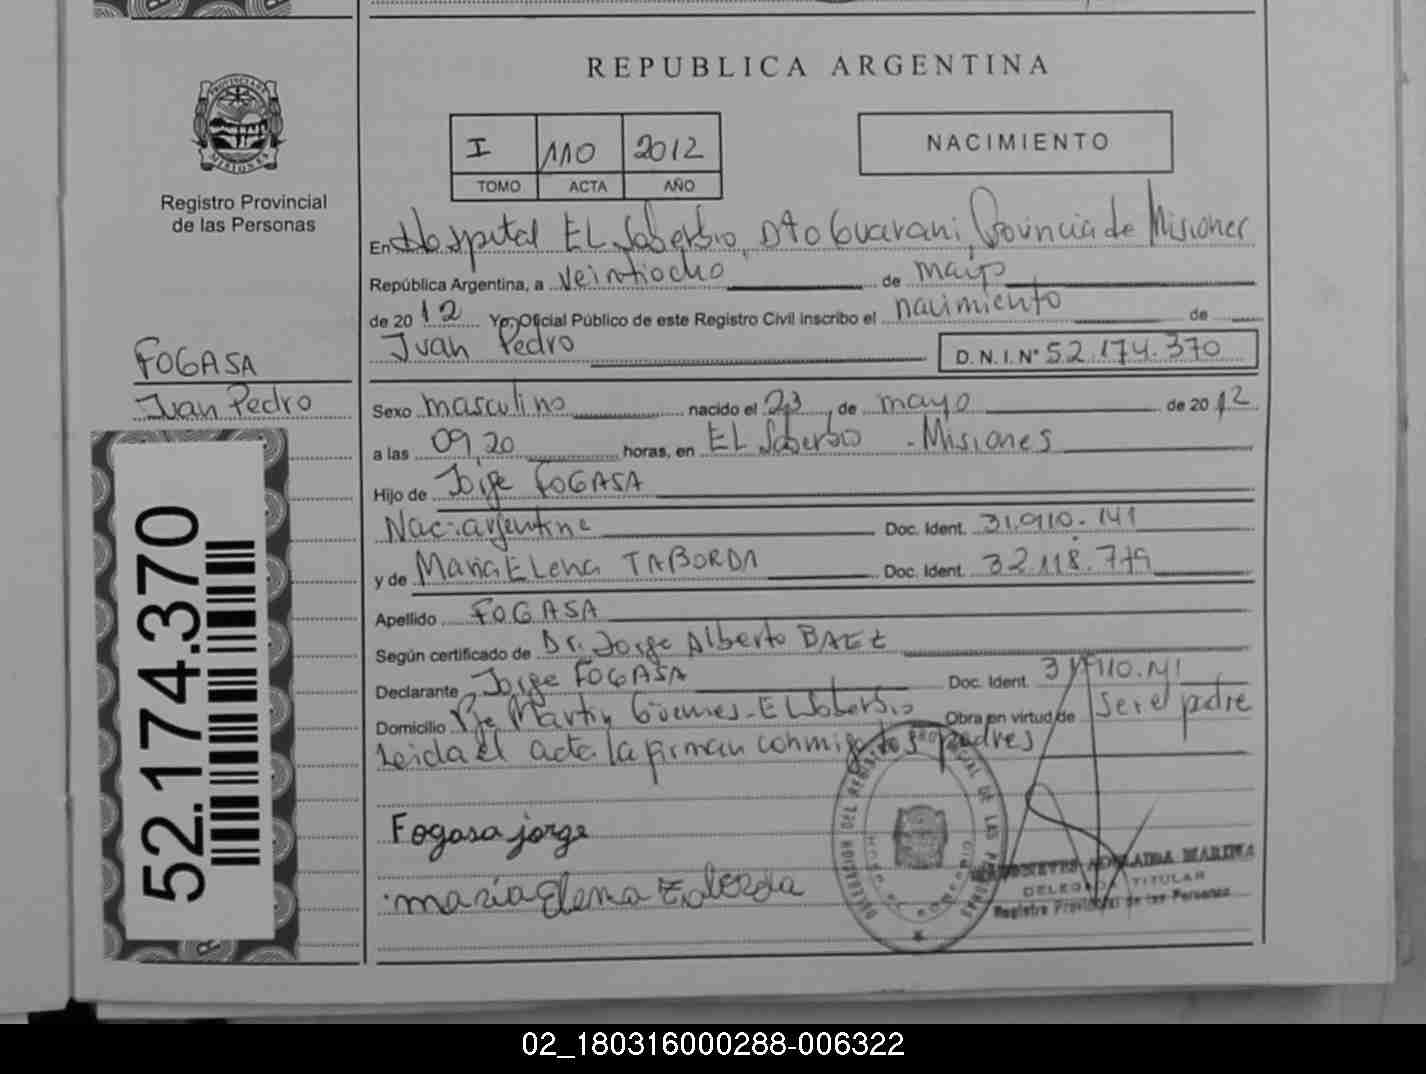 REPUBLICA ARGENTINA
PROVINCIA DE MISIONES
Registro Provincial
de las Personas
I 110 2012
TOMO ACTA AÑO
NACIMIENTO
En Hospital EL Soberbio, Dto Guarani, Provincia de Misiones
República Argentina, a veintiocho de mayo
de 2012 Yo, Oficial Público de este Registro Civil inscribo el nacimiento de
Juan Pedro D.N.I.N° 52.174.370
FOGASA
Juan Pedro
Sexo masculino nacido el 23 de mayo de 2012
a las 09,20 horas, en EL Soberbio - Misiones
Hijo de Jorge FOGASA
Nac. argentina Doc. Ident. 31.910.141
y de Maria Elena TABORDA Doc. Ident. 32.118.779
Apellido FOGASA
Según certificado de Dr. Jorge Alberto BAEZ
Declarante Jorge FOGASA Doc. Ident. 31.910.141
Domicilio Pje Martin Güemes - El Soberbio Obra en virtud de ser el padre
Leida el acta la firman conmigo los padres
Fogasa jorge
maria Elena Taborda
52.174.370
ADELAIDA MARINA
DELEGADA TITULAR
Registro Provincial de las Personas
02_180316000288-006322